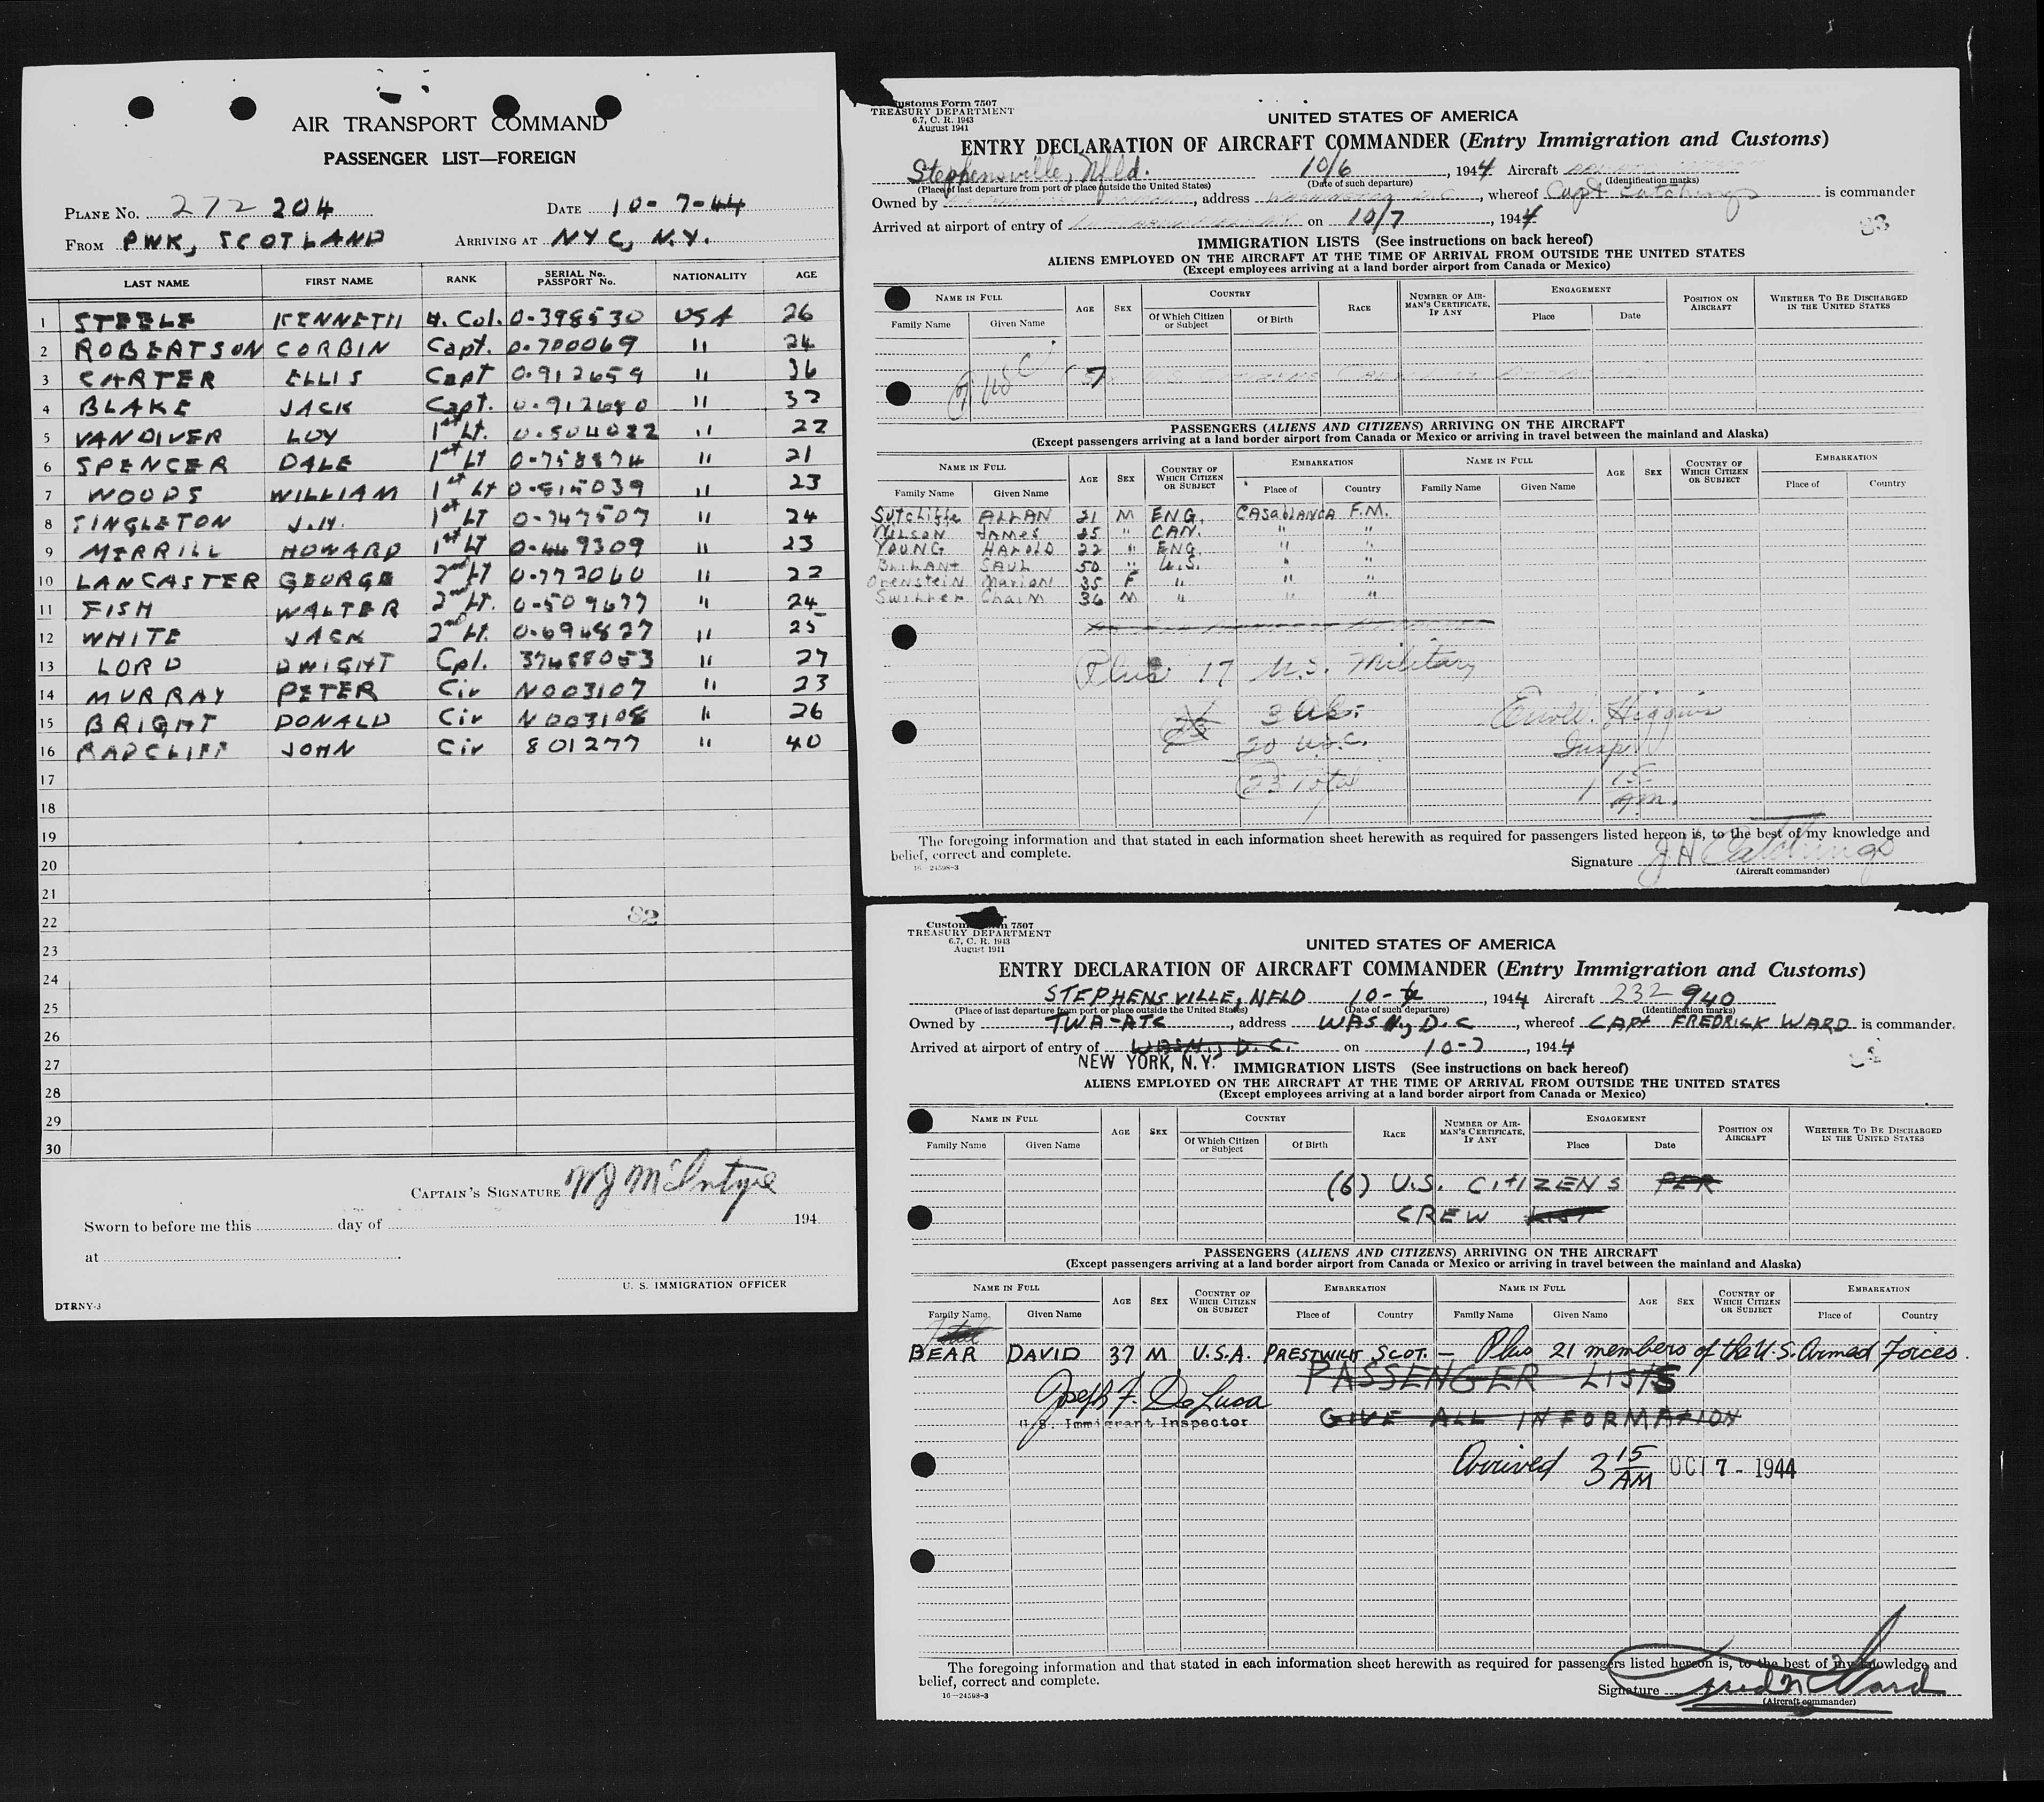 AIR TRANSPORT COMMAND
PASSENGER LIST—FOREIGN
PLANE No. 272 204 DATE 10-7-44
FROM PWK, SCOTLAND ARRIVING AT NYC, N.Y.
LAST NAME FIRST NAME RANK SERIAL No. PASSPORT No. NATIONALITY AGE
1 STEELE KENNETH Lt. Col. 0-398530 USA 26
2 ROBERTSON CORBIN Capt. 0-700069 " 24
3 CARTER ELLIS Capt 0-912659 " 36
4 BLAKE JACK Capt. 0-912680 " 32
5 VANDIVER LOY 1st Lt. 0-504082 " 22
6 SPENCER DALE 1st Lt 0-758874 " 21
7 WOODS WILLIAM 1st Lt 0-815039 " 23
8 SINGLETON J.H. 1st LT 0-747507 " 24
9 MERRILL HOWARD 1st Lt 0-449309 " 23
10 LANCASTER GEORGE 2nd Lt 0-772060 " 22
11 FISH WALTER 2nd Lt. 0-509677 " 24
12 WHITE JACK 2nd Lt. 0-694827 " 25
13 LORD DWIGHT Cpl. 37488053 " 27
14 MURRAY PETER Civ N003107 " 23
15 BRIGHT DONALD Civ N003108 " 26
16 RADCLIFF JOHN Civ 801277 " 40
17
18
19
20
21
22 82
23
24
25
26
27
28
29
30
CAPTAIN'S SIGNATURE WJ McIntyre
Sworn to before me this day of 194
at
U. S. IMMIGRATION OFFICER
DTRNY-3
Customs Form 7507
TREASURY DEPARTMENT
6.7, C. R. 1943
August 1941
UNITED STATES OF AMERICA
ENTRY DECLARATION OF AIRCRAFT COMMANDER (Entry Immigration and Customs)
Stephensville, Nfld. 10/6, 1944 Aircraft
(Place of last departure from port or place outside the United States) (Date of such departure) (Identification marks)
Owned by , address , whereof Capt Catchings is commander
Arrived at airport of entry of on 10/7, 1944
83
IMMIGRATION LISTS (See instructions on back hereof)
ALIENS EMPLOYED ON THE AIRCRAFT AT THE TIME OF ARRIVAL FROM OUTSIDE THE UNITED STATES
(Except employees arriving at a land border airport from Canada or Mexico)
NAME IN FULL AGE SEX COUNTRY RACE NUMBER OF AIRMAN'S CERTIFICATE, IF ANY ENGAGEMENT POSITION ON AIRCRAFT WHETHER TO BE DISCHARGED IN THE UNITED STATES
Family Name Given Name Of Which Citizen or Subject Of Birth Place Date
PASSENGERS (ALIENS AND CITIZENS) ARRIVING ON THE AIRCRAFT
(Except passengers arriving at a land border airport from Canada or Mexico or arriving in travel between the mainland and Alaska)
NAME IN FULL AGE SEX COUNTRY OF WHICH CITIZEN OR SUBJECT EMBARKATION NAME IN FULL AGE SEX COUNTRY OF WHICH CITIZEN OR SUBJECT EMBARKATION
Family Name Given Name Place of Country Family Name Given Name Place of Country
Sutcliffe ALLAN 21 M ENG. CASABLANCA F.M.
Wilson James 25 " CAN. " "
YOUNG HAROLD 22 " ENG. " "
SAUL 50 " U.S. " "
Orenstein Marion 35 F " " "
Chaim 36 M " " "
Plus 17 U.S. Military
3 Als.
20 U.S.C.
23 Total
Higgins
Insp.
1 15 am.
The foregoing information and that stated in each information sheet herewith as required for passengers listed hereon is, to the best of my knowledge and
belief, correct and complete.
Signature J.H. Catchings
(Aircraft commander)
16—24598-3
Customs Form 7507
TREASURY DEPARTMENT
6.7, C. R. 1943
August 1941
UNITED STATES OF AMERICA
ENTRY DECLARATION OF AIRCRAFT COMMANDER (Entry Immigration and Customs)
STEPHENSVILLE, NFLD 10- , 1944 Aircraft 232 940
(Place of last departure from port or place outside the United States) (Date of such departure) (Identification marks)
Owned by TWA-ATC, address WASH, D.C, whereof CAPt FREDRICK WARD is commander.
Arrived at airport of entry of WASH., D.C. on 10-7, 1944
NEW YORK, N.Y.
IMMIGRATION LISTS (See instructions on back hereof)
ALIENS EMPLOYED ON THE AIRCRAFT AT THE TIME OF ARRIVAL FROM OUTSIDE THE UNITED STATES
(Except employees arriving at a land border airport from Canada or Mexico)
NAME IN FULL AGE SEX COUNTRY RACE NUMBER OF AIRMAN'S CERTIFICATE, IF ANY ENGAGEMENT POSITION ON AIRCRAFT WHETHER TO BE DISCHARGED IN THE UNITED STATES
Family Name Given Name Of Which Citizen or Subject Of Birth Place Date
(6) U.S. CITIZENS PER
CREW LIST
PASSENGERS (ALIENS AND CITIZENS) ARRIVING ON THE AIRCRAFT
(Except passengers arriving at a land border airport from Canada or Mexico or arriving in travel between the mainland and Alaska)
NAME IN FULL AGE SEX COUNTRY OF WHICH CITIZEN OR SUBJECT EMBARKATION NAME IN FULL AGE SEX COUNTRY OF WHICH CITIZEN OR SUBJECT EMBARKATION
Family Name Given Name Place of Country Family Name Given Name Place of Country
BEAR DAVID 37 M U.S.A. PRESTWICK SCOT. — Plus 21 members of the U.S. Armed Forces.
PASSENGER LISTS
Joseph F. DeLuca
U.S. Immigrant Inspector
GIVE ALL INFORMATION
Arrived 3 15 AM OCT 7 - 1944
The foregoing information and that stated in each information sheet herewith as required for passengers listed hereon is, to the best of my knowledge and
belief, correct and complete.
Signature Fred N Ward
(Aircraft commander)
16—24598-3